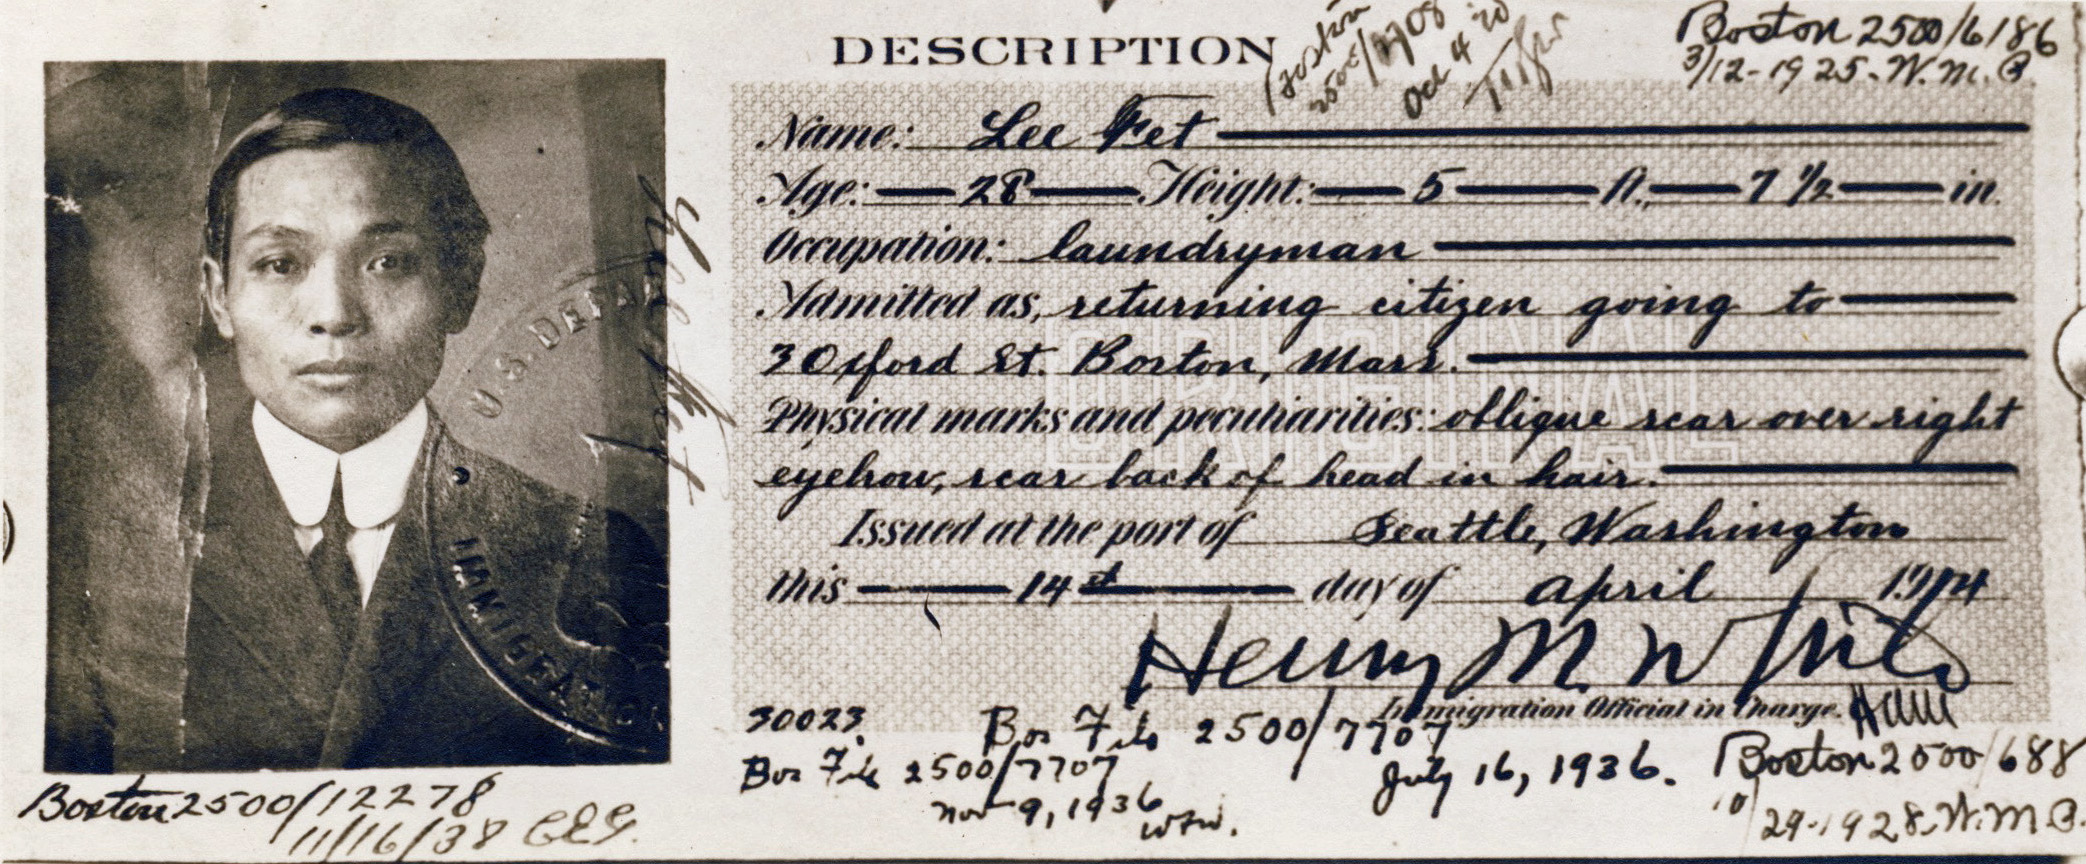 DESCRIPTION
Boston
2500/
Oct 4 '20
Boston 2500/6186
3/12-1925-W.M.B.
Name: Lee Fet
Age: 28 Height: 5 ft. 7 1/2 in.
Occupation: laundryman
Admitted as, returning citizen going to
3 Oxford St. Boston, Mass.
ORIGINAL
Physical marks and peculiarities: oblique scar over right
eyebrow, scar back of head in hair.
Issued at the port of Seattle, Washington
this 14st day of april 1914
Henry M. White
Immigration Official in Charge.
U.S. DEPAR
IMMIGRATIO
Lee Fet
30023
Bos File 2500/7707
July 16, 1936.
Bos File 2500/7707
Nov 9, 1936
Boston 2500/688
10/29-1928-W.M.B.
Boston 2500/12278
11/16/38 CEG.